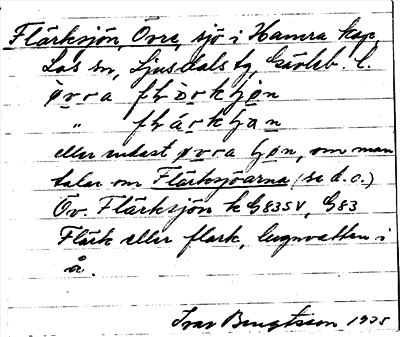 Flärksjön, Övre, sjö i Hamra kap.
Los sn, Ljusdals tg, Gävleb. l.
ø̀vra flärkhjøn
" flärkhjan
eller endast øvra hjøn, om man
talar om Flärksjöarna (se d.o.)
Öv. Flärksjön k G83SV, G83
Flärk eller flark, lugnvatten i
å.
Ivar Bengtsson 1935